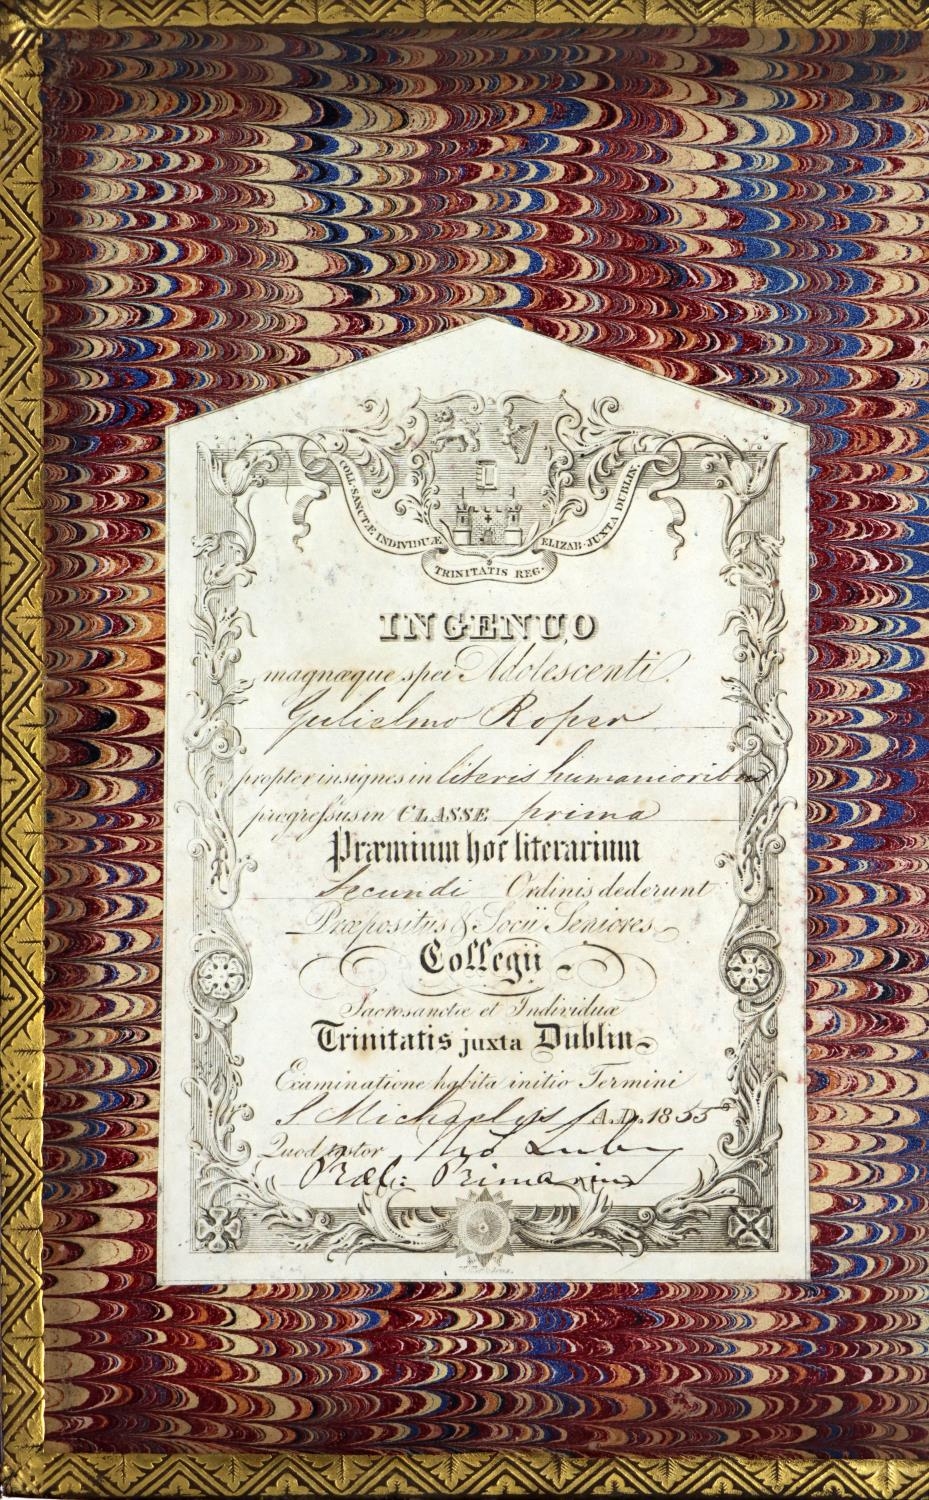 COLL · SANCTÆ INDIVIDUÆ
TRINITATIS REG.
ELIZAB · JUXTA DUBLIN.
INGENUO
magnæque spei Adolescenti.
Gulielmo Roper
propter insignes in literis humanioribus
progressus in CLASSE prima
Præmium hoc literarium
Secundi Ordinis dederunt
Præpositus & Socii Seniores
Collegii
Sacrosanctæ et Individuæ
Trinitatis juxta Dublin
Examinatione habita initio Termini
S Michaelis A.D. 1855
Quod testor Tho Luby
Præl: Primarius